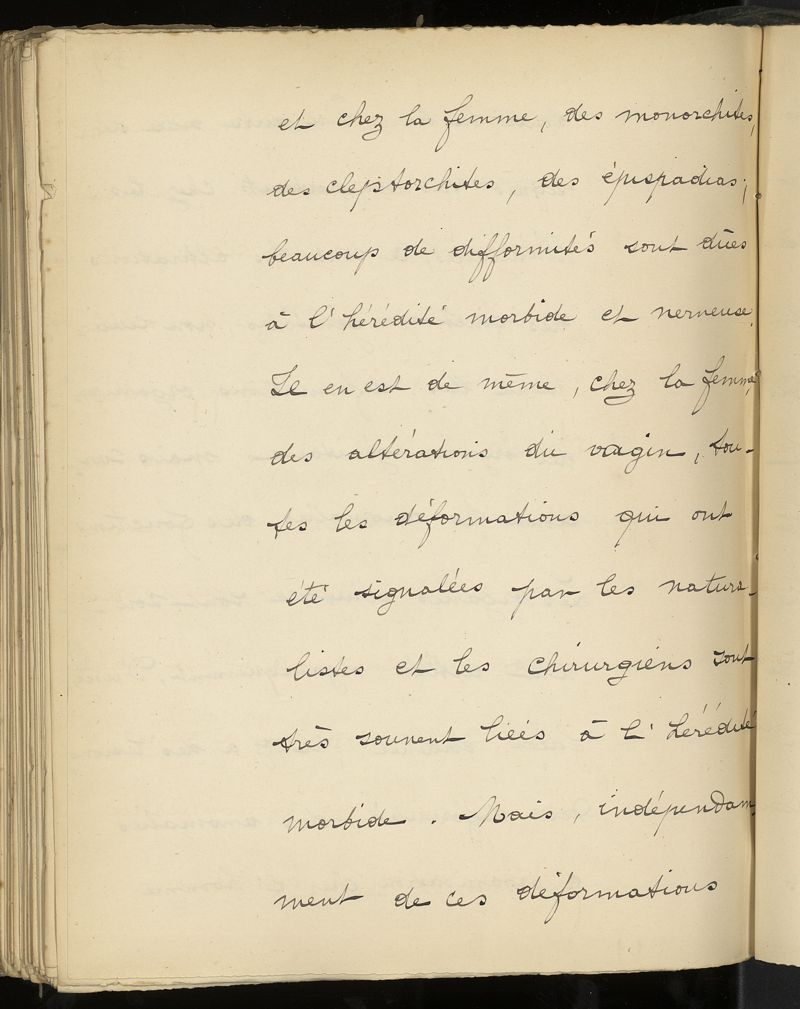 et chez la femme, des monorchites,
des clepstorchites, des épispadias;
beaucoup de difformités sont dûes
à l'hérédité morbide et nerveuse.
Il en est de même, chez la femme,
des altérations du vagin, tou-
tes les déformations qui ont
été signalées par les natura-
listes et les chirurgiens sont
très souvent liées à l'hérédité
morbide. Mais, indépendam-
ment de ces déformations